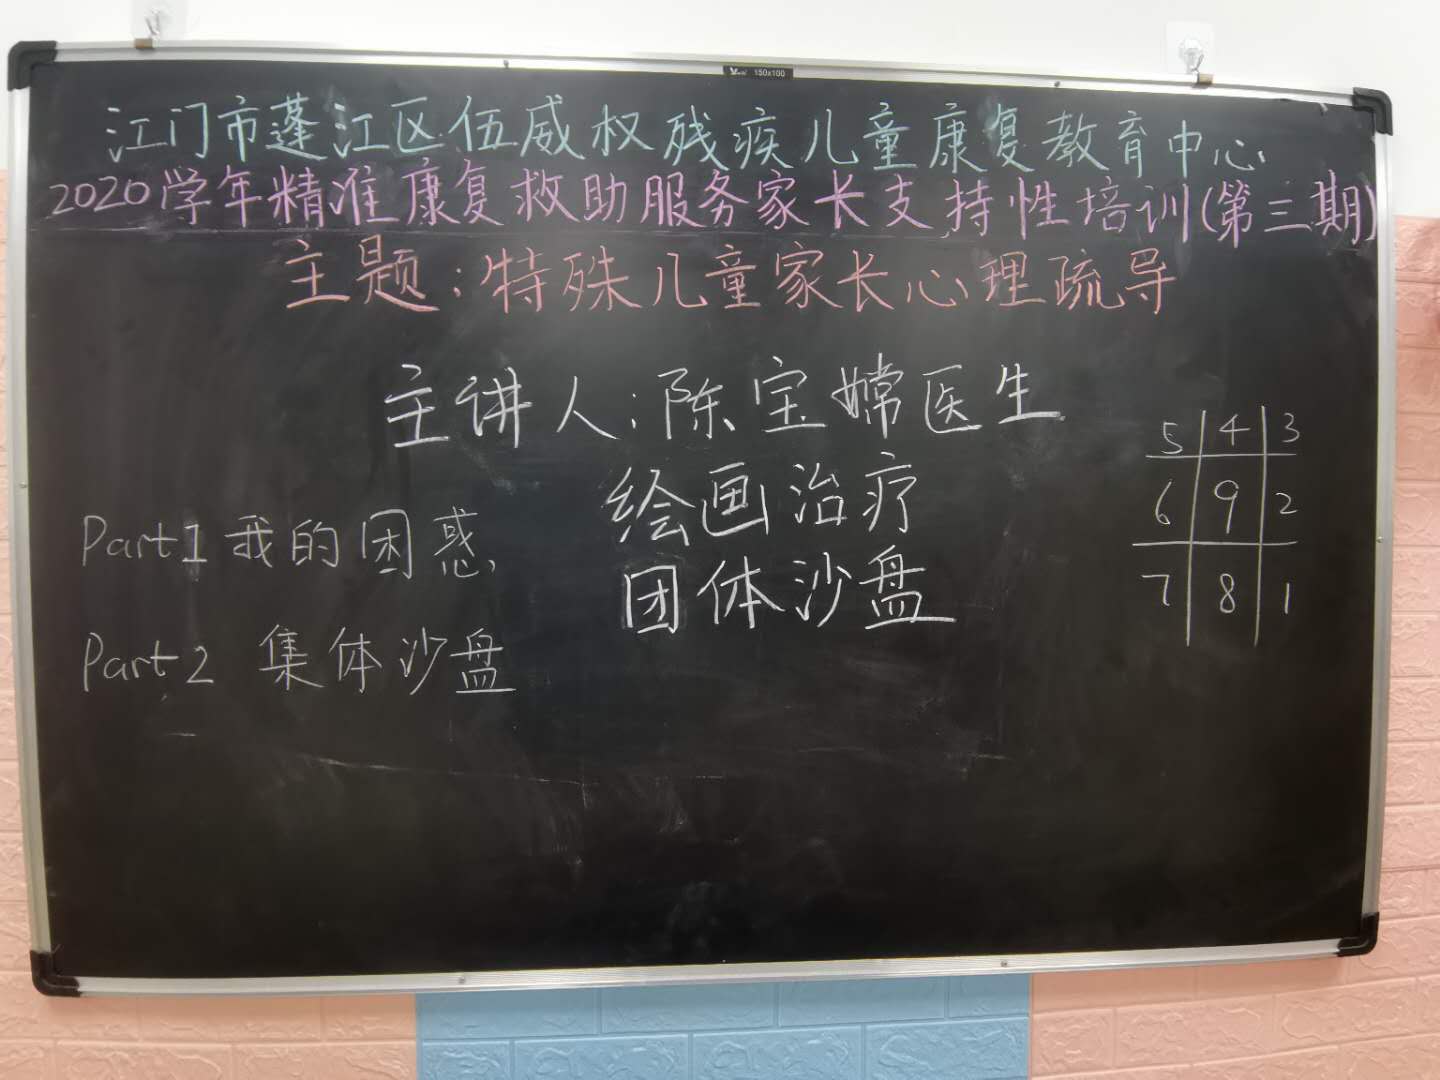 150x100
江门市蓬江区伍威权残疾儿童康复教育中心
2020学年精准康复救助服务家长支持性培训(第三期)
主题:特殊儿童家长心理疏导
主讲人:陈宝嫦医生
绘画治疗
团体沙盘
Part1 我的困惑
Part2 集体沙盘
5 4 3
6 9 2
7 8 1